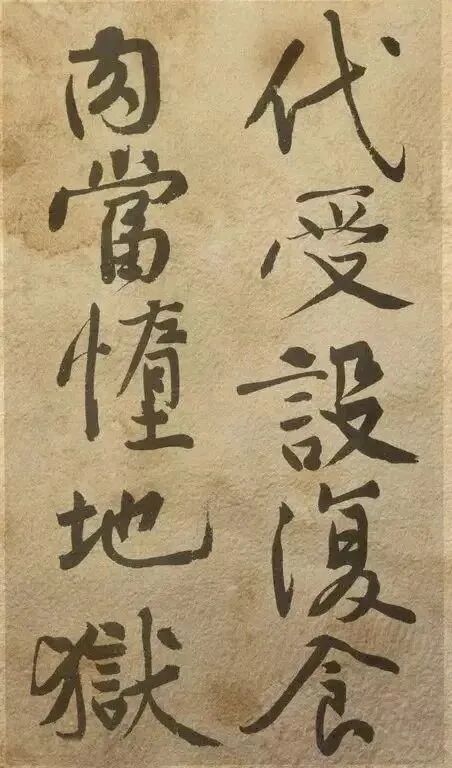 代受設復食
肉當墮地獄